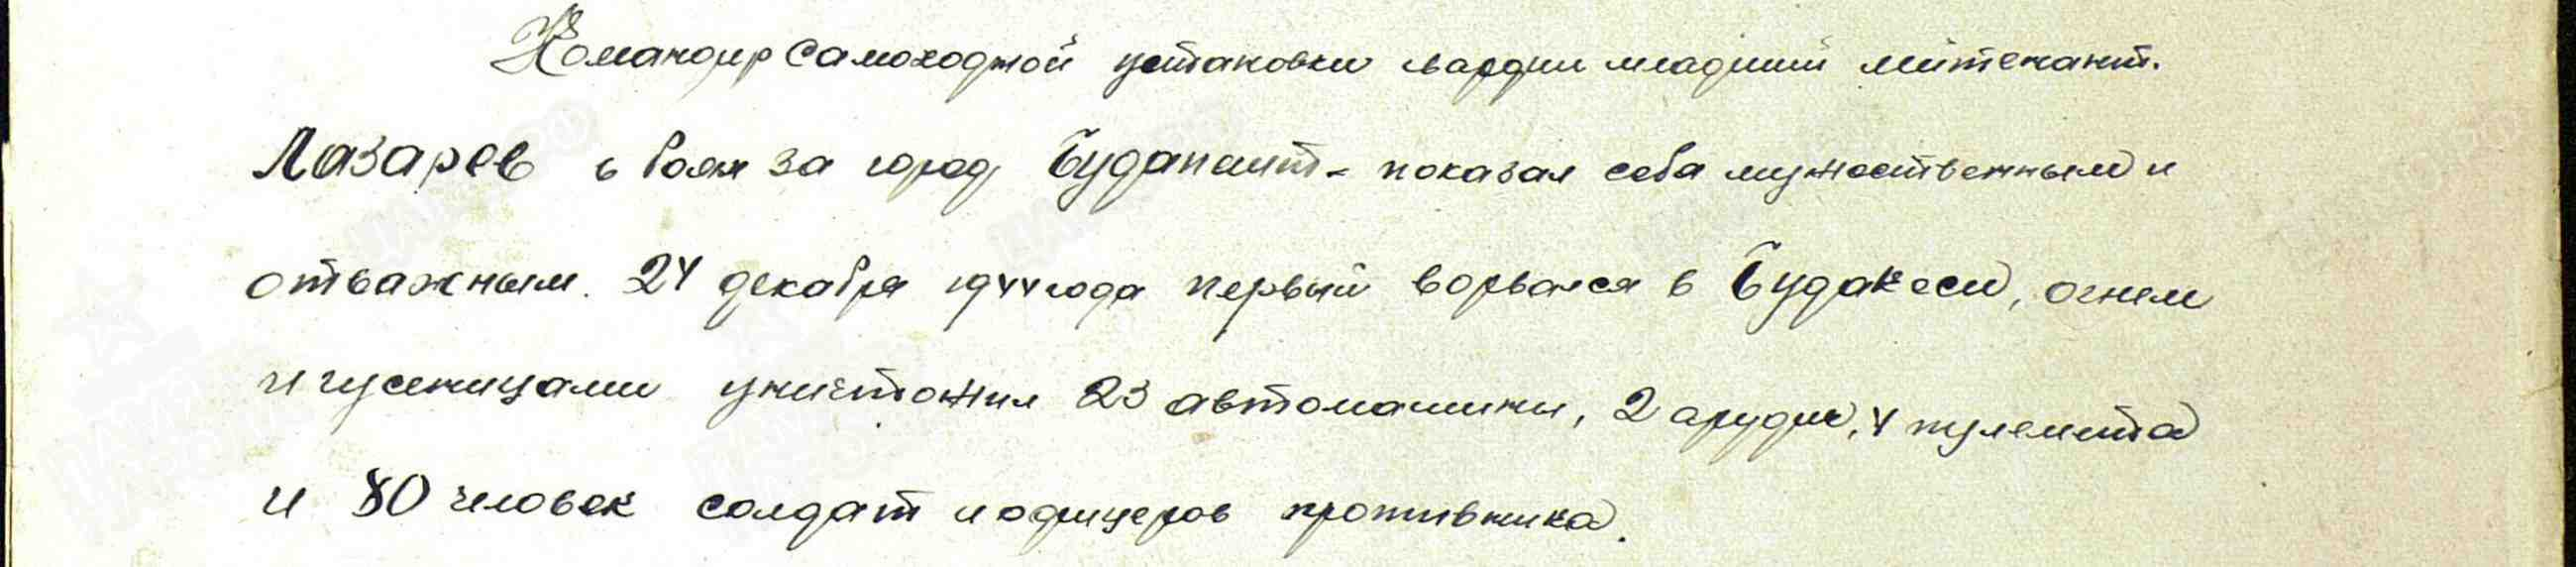 Командир самоходной установки гвардии младший лейтенант.
Лазарев в боях за город Будапешт - показал себя мужественным и
отважным. 24 декабря 1944 года первый ворвался в Будакеси, огнем
и гусеницами уничтожил 23 автомашины, 2 арудия, 4 пулемета
и 80 человек солдат и офицеров противника.